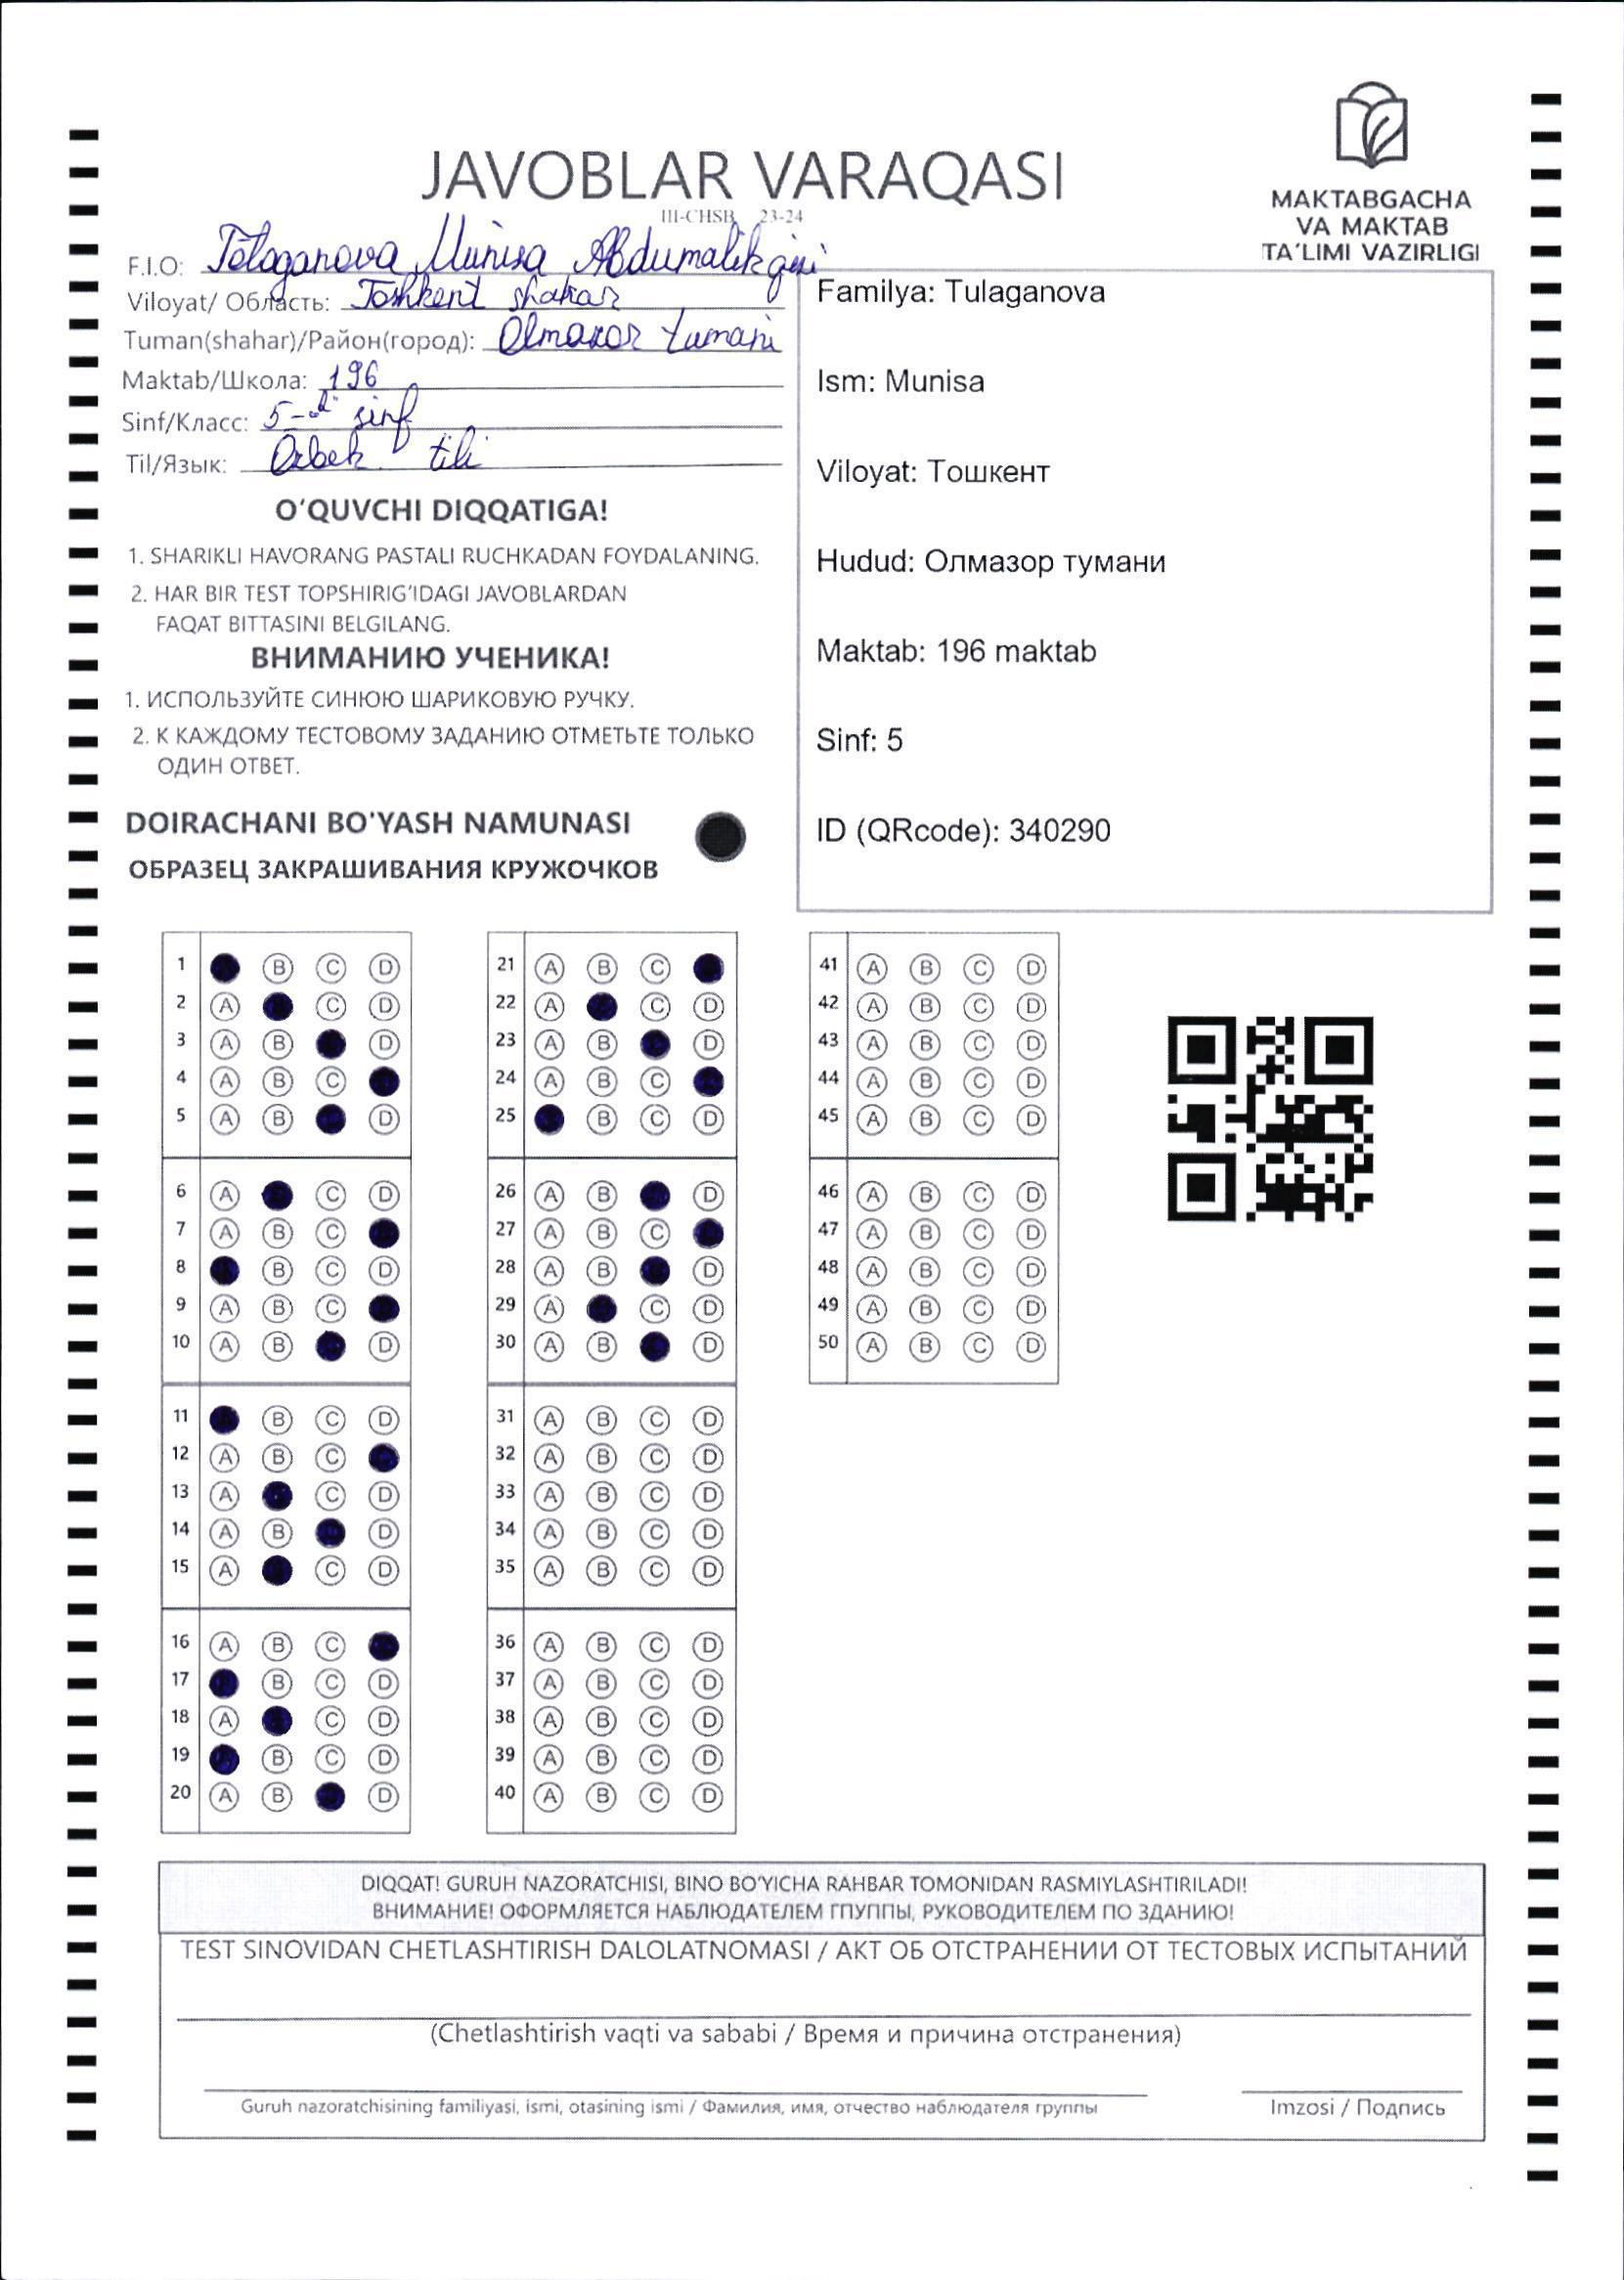 JAVOBLAR VARAQASI
III-CHSB 23-24
MAKTABGACHA
VA MAKTAB
TA'LIMI VAZIRLIGI
F.I.O: Tòlaganova Munisa Abdumalik qizi
Viloyat/ Область: Toshkent shahar
Tuman(shahar)/Район(город): Olmazor tumani
Maktab/Школа: 196
Sinf/Класс: 5- sinf
Til/Язык: Ozbek tili
Familya: Tulaganova
Ism: Munisa
Viloyat: Тошкент
Hudud: Олмазор тумани
Maktab: 196 maktab
Sinf: 5
ID (QRcode): 340290
O'QUVCHI DIQQATIGA!
1. SHARIKLI HAVORANG PASTALI RUCHKADAN FOYDALANING.
2. HAR BIR TEST TOPSHIRIG'IDAGI JAVOBLARDAN
FAQAT BITTASINI BELGILANG.
ВНИМАНИЮ УЧЕНИКА!
1. ИСПОЛЬЗУЙТЕ СИНЮЮ ШАРИКОВУЮ РУЧКУ.
2. К КАЖДОМУ ТЕСТОВОМУ ЗАДАНИЮ ОТМЕТЬТЕ ТОЛЬКО
ОДИН ОТВЕТ.
DOIRACHANI BO'YASH NAMUNASI
ОБРАЗЕЦ ЗАКРАШИВАНИЯ КРУЖОЧКОВ
1 B C D
2 A C D
3 A B D
4 A B C
5 A B D
6 A C D
7 A B C
8 B C D
9 A B C
10 A B D
11 B C D
12 A B C
13 A C D
14 A B D
15 A C D
16 A B C
17 B C D
18 A C D
19 B C D
20 A B D
21 A B C
22 A C D
23 A B D
24 A B C
25 B C D
26 A B D
27 A B C
28 A B D
29 A C D
30 A B D
31 A B C D
32 A B C D
33 A B C D
34 A B C D
35 A B C D
36 A B C D
37 A B C D
38 A B C D
39 A B C D
40 A B C D
41 A B C D
42 A B C D
43 A B C D
44 A B C D
45 A B C D
46 A B C D
47 A B C D
48 A B C D
49 A B C D
50 A B C D
DIQQAT! GURUH NAZORATCHISI, BINO BO'YICHA RAHBAR TOMONIDAN RASMIYLASHTIRILADI!
ВНИМАНИЕ! ОФОРМЛЯЕТСЯ НАБЛЮДАТЕЛЕМ ГПУППЫ, РУКОВОДИТЕЛЕМ ПО ЗДАНИЮ!
TEST SINOVIDAN CHETLASHTIRISH DALOLATNOMASI / АКТ ОБ ОТСТРАНЕНИИ ОТ ТЕСТОВЫХ ИСПЫТАНИЙ
(Chetlashtirish vaqti va sababi / Время и причина отстранения)
Guruh nazoratchisining familiyasi, ismi, otasining ismi / Фамилия, имя, отчество наблюдателя группы
Imzosi / Подпись